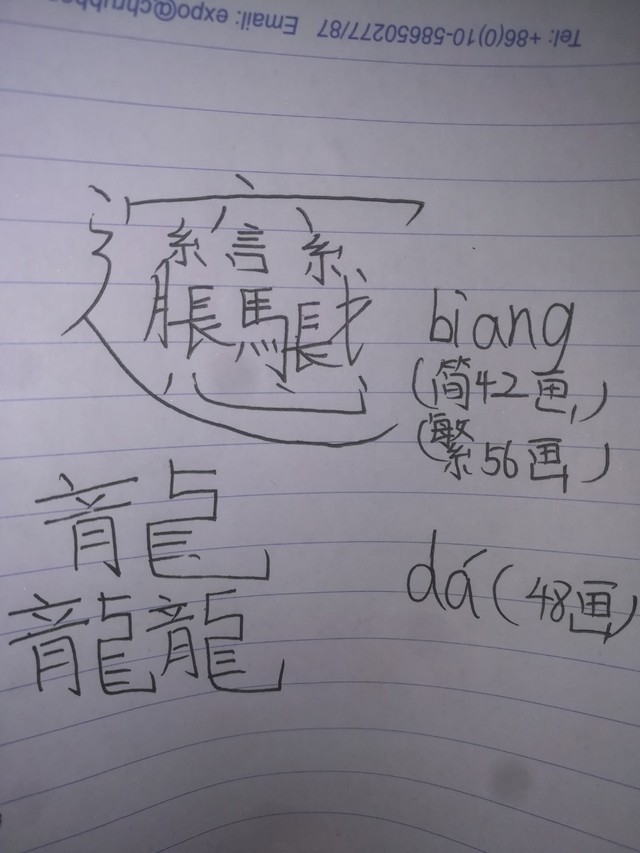 Tel: +86(0)10-58650277/87 Email:
𰻞 biang
(简42画)
(繁56画)
龘 dá(48画)